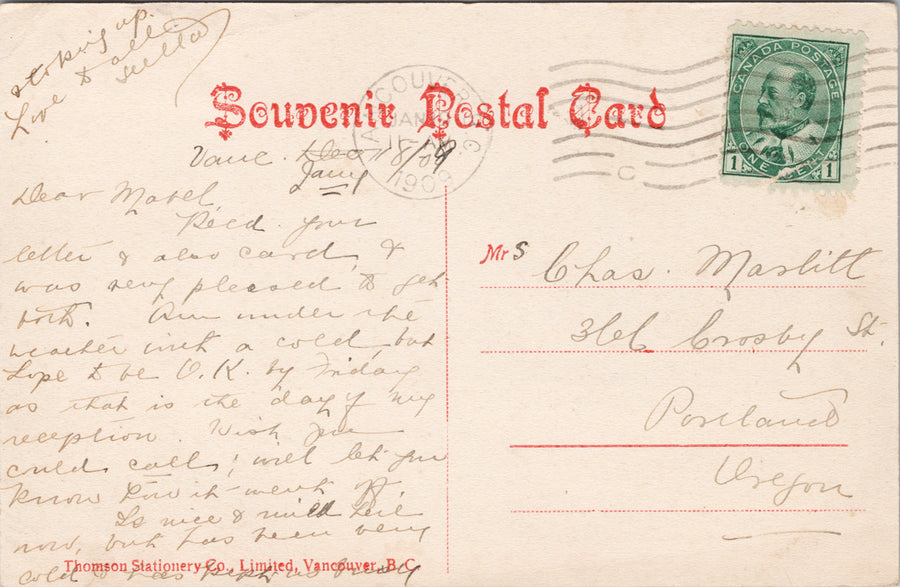 Souvenir Postal Card
VANCOUVER B.C.
JAN
1909
C
CANADA POSTAGE
1 ONE CENT 1
Vanc. Dec 18/09
Jany
Dear Mabel,
Recd. your
letter & also card, &
was very pleased to get
both. Am under the
weather with a cold, but
hope to be O.K. by Friday
as that is the day of my
reception. Wish you
could call; will let you
know how it went off.
Is nice & mild here
now, but has been very
cold & has kept us busy
stoking up.
Love to all.
Mrs Chas. Marlitt
366 Crosby St.
Portland
Oregon
Thomson Stationery Co., Limited, Vancouver, B.C.